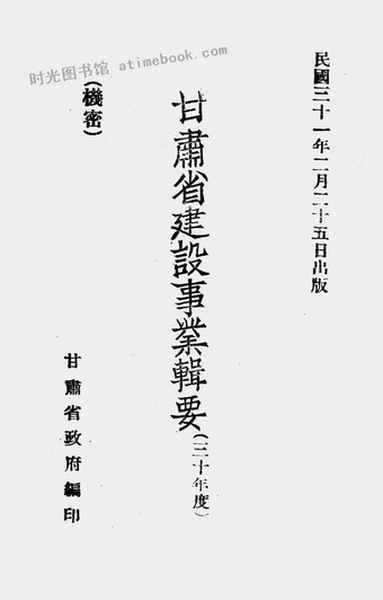 民國三十一年二月二十五日出版
甘肅省建設事業輯要(三十年度)
(機密)
甘肅省政府編印
时光图书馆 atimebook.com